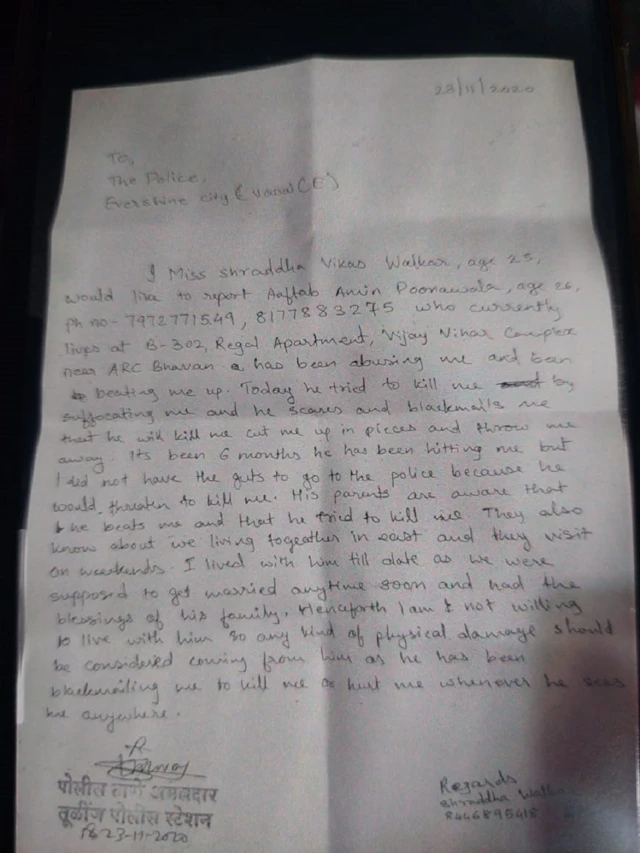 23/11/2020
To,
The Police,
Evershine city (Vasai (E)
I Miss Shraddha Vikas Walkar, age 25,
would like to report Aaftab Amin Poonawala, age 26,
ph no- 7972771549, 8177883275 who currently
lives at B-302, Regal Apartment, Vijay Vihar Complex
near ARC Bhavan has been abusing me and been
beating me up. Today he tried to kill me by
suffocating me and he scares and blackmails me
that he will kill me cut me up in pieces and throw me
away. Its been 6 months he has been hitting me but
I did not have the guts to go to the police because he
would threaten to kill me. His parents are aware that
he beats me and that he tried to kill me They also
know about we living together in east and they visit
on weekends. I lived with him till date as we were
supposed to get married anytime soon and had the
blessings of his family. Henceforth I am not willing
to live with him so any kind of physical damage should
be considered coming from him as he has been
blackmailing me to kill me or hurt me whenever he sees
me anywhere.
पोलीस ठाणे अमलदार
तूळींज पोलीस स्टेशन
23-11-2020
Regards
Shraddha